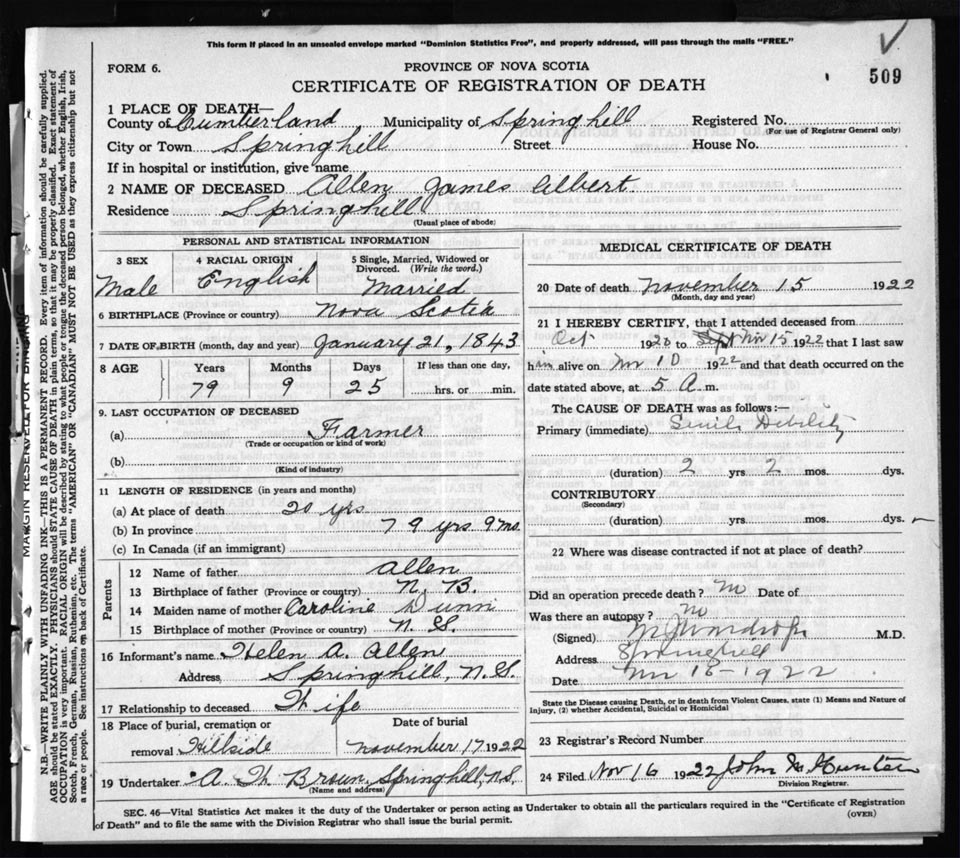 This form if placed in an unsealed envelope marked "Dominion Statistics Free", and properly addressed, will pass through the mails "FREE."
509
FORM 6.
PROVINCE OF NOVA SCOTIA
CERTIFICATE OF REGISTRATION OF DEATH
1 PLACE OF DEATH—
County of Cumberland Municipality of Springhill Registered No.
(For use of Registrar General only)
City or Town Springhill Street House No.
If in hospital or institution, give name
2 NAME OF DECEASED Allen James Albert.
Residence Springhill
(Usual place of abode)
PERSONAL AND STATISTICAL INFORMATION
3 SEX 4 RACIAL ORIGIN 5 Single, Married, Widowed or Divorced. (Write the word.)
Male English Married
6 BIRTHPLACE (Province or country) Nova Scotia
7 DATE OF BIRTH (month, day and year) January 21, 1843
8 AGE Years Months Days If less than one day,
79 9 25 hrs. or min.
9. LAST OCCUPATION OF DECEASED
(a) Farmer
(Trade or occupation or kind of work)
(b)
(Kind of industry)
11 LENGTH OF RESIDENCE (in years and months)
(a) At place of death 20 yrs
(b) In province 79 yrs 9 mo.
(c) In Canada (if an immigrant)
Parents
12 Name of father Allen
13 Birthplace of father (Province or country) N. B.
14 Maiden name of mother Caroline Dunn
15 Birthplace of mother (Province or country) N. S.
16 Informant's name Helen A. Allen
Address Springhill, N.S.
17 Relationship to deceased Wife
18 Place of burial, cremation or Date of burial
removal Hillside November 17 1922
19 Undertaker A. W. Brown, Springhill, N.S.
(Name and address)
MEDICAL CERTIFICATE OF DEATH
20 Date of death November 15 1922
(Month, day and year)
21 I HEREBY CERTIFY, that I attended deceased from
Oct 1920 to Sept Nov 15 1922 that I last saw
him alive on Nov 10 1922 and that death occurred on the
date stated above, at 5 A m.
The CAUSE OF DEATH was as follows:—
Primary (immediate) Senile Debility
(duration) 2 yrs 2 mos. dys.
CONTRIBUTORY
(Secondary)
(duration) yrs. mos. dys.
22 Where was disease contracted if not at place of death?
Did an operation precede death? No Date of
Was there an autopsy? No
(Signed) M.D.
Address Springhill
Date Nov 18-1922
State the Disease causing Death, or in death from Violent Causes, state (1) Means and Nature of
Injury, (2) whether Accidental, Suicidal or Homicidal
23 Registrar's Record Number
24 Filed Nov 16 1922 John Hunter
Division Registrar.
SEC. 46—Vital Statistics Act makes it the duty of the Undertaker or person acting as Undertaker to obtain all the particulars required in the "Certificate of Registration
of Death" and to file the same with the Division Registrar who shall issue the burial permit.
(OVER)
MARGIN RESERVED FOR BINDING
N.B.—WRITE PLAINLY WITH UNFADING INK—THIS IS A PERMANENT RECORD. Every item of information should be carefully supplied.
AGE should be stated EXACTLY. PHYSICIANS should STATE CAUSE OF DEATH in plain terms, so that it may be properly classified. Exact statement of
OCCUPATION is very important. RACIAL ORIGIN will be described by stating to what people or tongue the deceased person belonged, whether English, Irish,
Scotch, French, German, Russian, Ruthenian, etc. The terms "AMERICAN" OR "CANADIAN" MUST NOT BE USED as they express citizenship but not
a race or people. See instructions on back of Certificate.